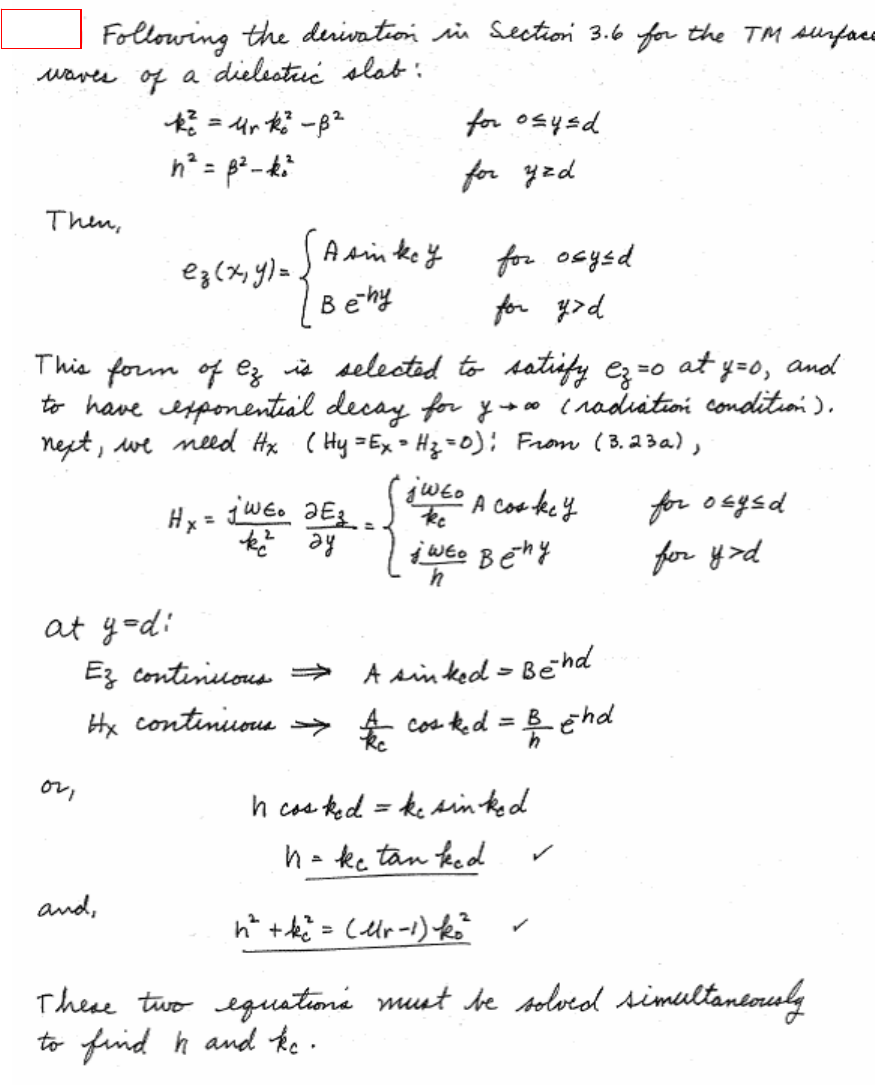 Following the derivation in Section 3.6 for the TM surface
waves of a dielectric slab:
k_c² = μ_r k_0² - β² for 0≤y≤d
h² = β² - k_0² for y≥d
Then,
e_z(x,y) = { A sin k_c y for 0≤y≤d
B e^-hy for y>d
This form of e_z is selected to satisfy e_z=0 at y=0, and
to have exponential decay for y→∞ (radiation condition).
next, we need Hx (Hy=Ex=Hz=0): From (3.23a),
Hx = jωε_0/k_c² ∂E_z/∂y = { jωε_0/k_c A cos k_c y for 0≤y≤d
jωε_0/h B e^-hy for y>d
at y=d:
Ez continuous ⇒ A sin k_c d = B e^-hd
Hx continuous ⇒ A/k_c cos k_c d = B/h e^-hd
or,
h cos k_c d = k_c sin k_c d
h = k_c tan k_c d ✓
and,
h² + k_c² = (μ_r-1) k_0² ✓
These two equations must be solved simultaneously
to find h and k_c.